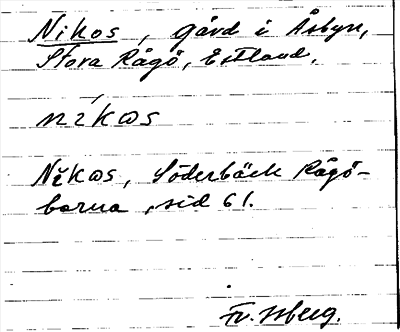 Nikos, gård i Åsbyn,
Stora Rågö, Estland.
nikωs
Nikωs, Söderbäck Rågö-
borna, sid 61.
Fr. Isberg.